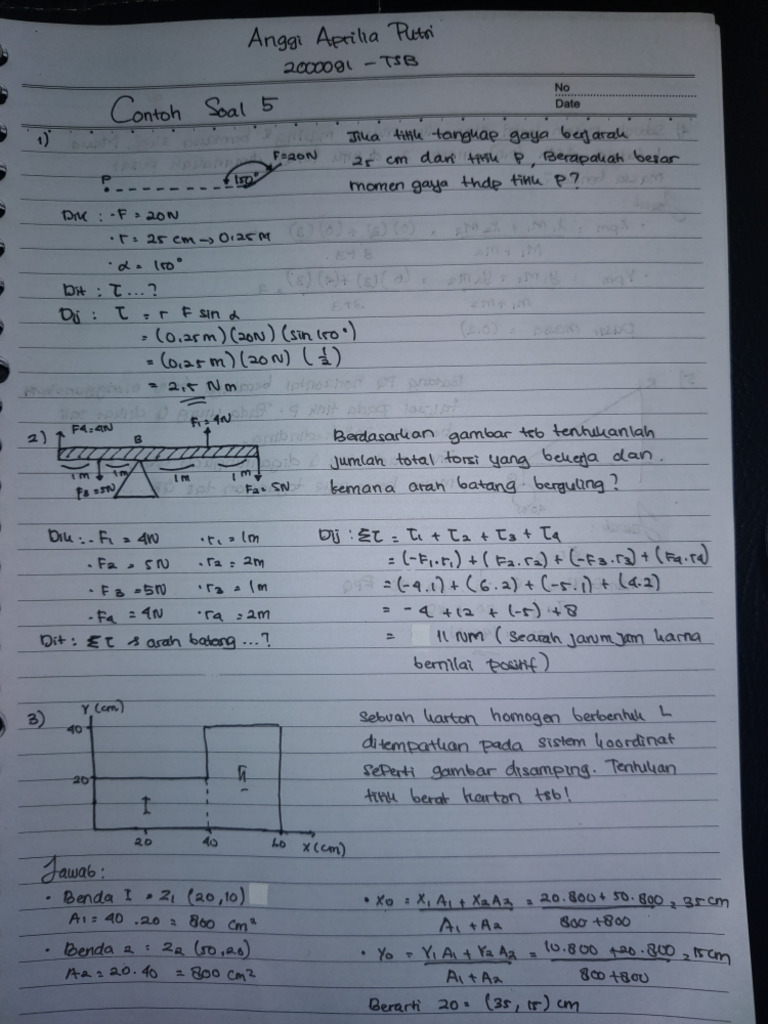 Anggi Aprilia Putri
2000081 - TSB
No
Date
Contoh Soal 5
1)
P
150°
F=20N
Jika titik tangkap gaya berjarak
25 cm dari titik P, Berapakah besar
momen gaya thdp titik P?
Dik : · F = 20N
· r = 25 cm → 0,25 M
· α = 150°
Dit : τ ...?
Dj : τ = r F sin α
= (0,25m) (20N) (sin 150°)
= (0,25m) (20N) (1/2)
= 2,5 Nm
2)
F4=4N
B
F1=4N
1m
1m
1m
1m
F3=5N
F2=5N
Berdasarkan gambar tsb tentukanlah
jumlah total torsi yang bekerja dan
kemana arah batang berguling?
Dik : · F1 = 4N · r1 = 1m
· F2 = 5N · r2 = 2m
· F3 = 5N · r3 = 1m
· F4 = 4N · r4 = 2m
Dit : Στ & arah batang ...?
Dij : Στ = τ1 + τ2 + τ3 + τ4
= (-F1.r1) + (F2.r2) + (-F3.r3) + (F4.r4)
= (-4.1) + (6.2) + (-5.1) + (4.2)
= -4 + 12 + (-5) + 8
= 11 NM (searah jarum jam karna
bernilai positif)
3)
Y (cm)
40
20
I
II
20
40
60
X (cm)
Sebuah karton homogen berbentuk L
ditempatkan pada sistem koordinat
seperti gambar disamping. Tentukan
titik berat karton tsb!
Jawab :
· Benda I = Z1 (20,10)
A1 = 40 . 20 = 800 cm²
· Benda 2 : Z2 (50,20)
A2 = 20.40 = 800 cm²
· X0 = X1 A1 + X2 A2 / A1 + A2 = 20.800 + 50.800 / 800 + 800 = 35 cm
· Y0 = Y1 A1 + Y2 A2 / A1 + A2 = 10.800 + 20.800 / 800 + 800 = 15 cm
Berarti Z0 = (35, 15) cm